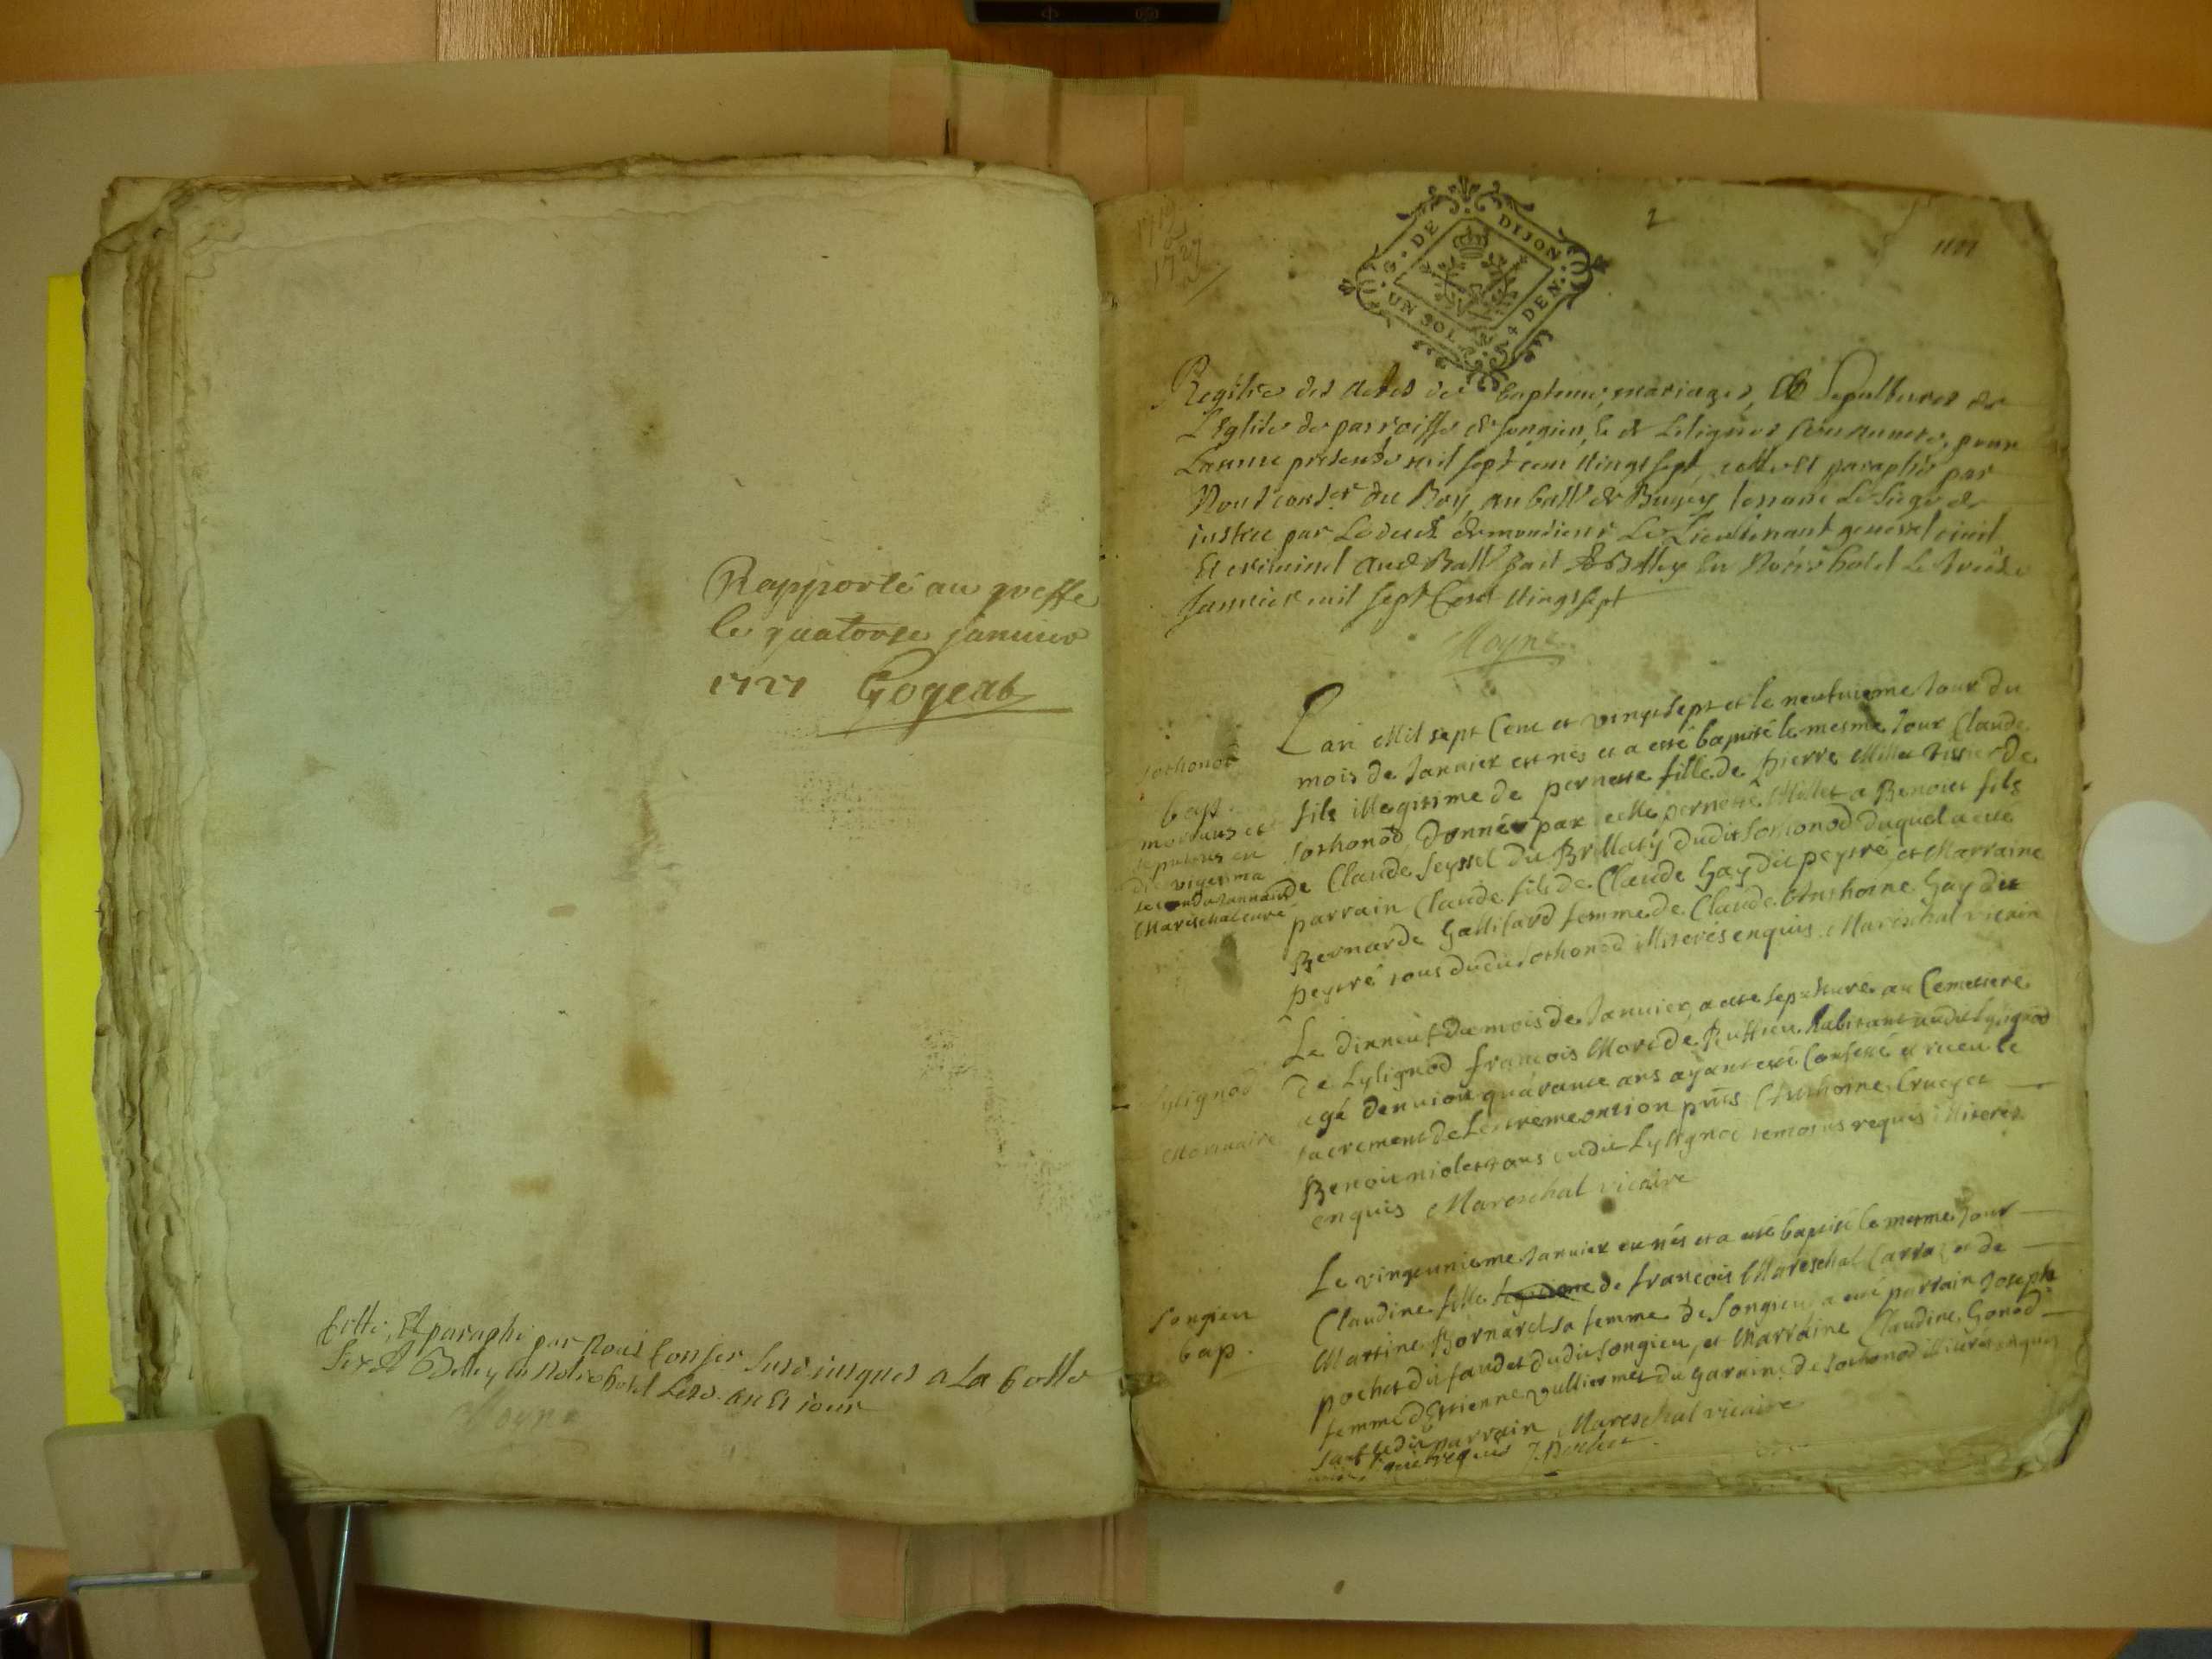 Rapporté au greffe
le quatorze janvier
1727 Gogeat
Cotté, Et paraphé par Nous Conser susd. jusques a La Cotte
Belley En Notre hotel Lesd. an Et jour
Moyne
1719
a
1727
G. DE DIJON
UN SOL 4 DEN.
2
1727
Registre des Actes de baptemes, mariages, Et Sepultures de
L'Eglise de parroisse de Songieu, & de Lilignod son annexe, pour
Lannée présente mil sept cent vingt sept, cotté et paraphé par
Nous conser du Roy au ball. de Bugey tenant Le Siege de
justice par Le deces de monsieur Le Lieutenant general civil
Et criminel aud. Ball. fait A Belley En Notre hotel Le treize
Janvier mil sept Cent vingt sept
Moyne
Lan Mil sept Cent et vingt sept et le neufvieme Jour du
mois de Janvier est nés et a esté baptisé le mesme Jour Claude
fils illegitime de pernette fille de pierre Millet tissier de
Sothonod, donné par elle pernette Millet a Benoict fils
de Claude Seyssel du Brillaty dudit Sothonod duquel a esté
parrain Claude fils de Claude Gay dit peytre et Marraine
Bernarde Gallifard femme de Claude Anthoine Gay dit
peytre tous dudit Sothonod illiteres enquis Mareschal vicaire
Sothonod
bapt.
mortuus est
sepultus
die vigesima
secunda Januarii
Mareschal curé
Le dixneuf du mois de Janvier, a esté sepulturé au Cemettere
de Lylignod francois Mort de Ruffieu habitant audit Lylignod
agé denviron quarante ans ayant esté Confessé et receu le
sacrement de Lextremeontion pnts Anthoine Cruyet
Benoit niolet tous dudit Lylignod temoins requis illiteres
enquis Mareschal vicaire
Lylignod
Mortuaire
Le vingt unieme Janvier est nés et a esté baptisé le mesme Jour
Claudine fille de francois Mareschal Carraz et de
Martine Bornarel sa femme de Songieu, a esté parrain Joseph
pochet dit faudet dudit Songieu, et Marraine Claudine Gonod
femme d'Etienne gulliermet du garain de Sothonod illiteres enquis
sauf ledit parrain Mareschal vicaire
requis J. Pochet
Songieu
bap.